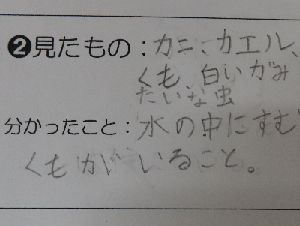 ❷見たもの：カニ、カエル、
くも、白いがみ
たいな虫
分かったこと：水の中にすむ
くもがいること。